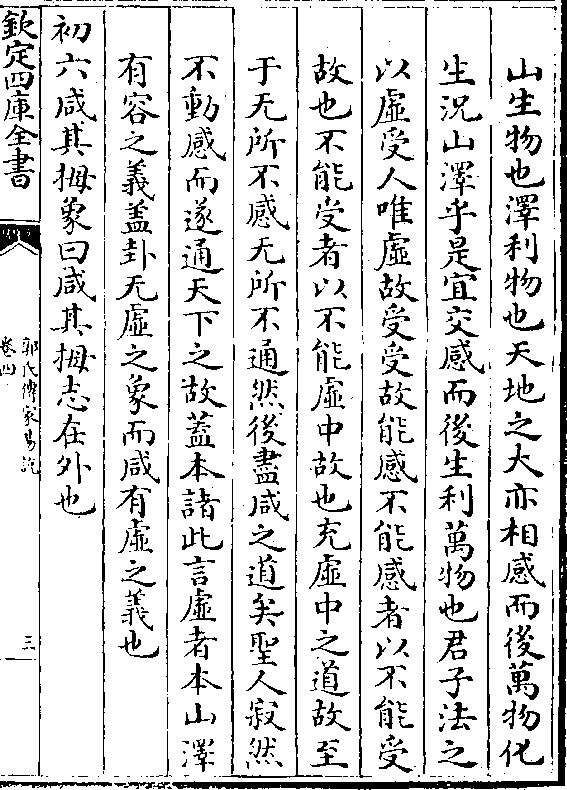 山生物也澤利物也天地之大亦相感而後萬物化
生況山澤乎是宜交感而後生利萬物也君子法之
以虛受人唯虛故受受故能感不能感者以不能受
故也不能受者以不能虛中故也充虛中之道故至
于无所不感无所不通然後盡咸之道矣聖人寂然
不動感而遂通天下之故蓋本諸此言虛者本山澤
有容之義蓋卦无虛之象而咸有虛之義也
初六咸其拇象曰咸其拇志在外也
欽定四庫全書
郭氏傳家易說
卷四
三